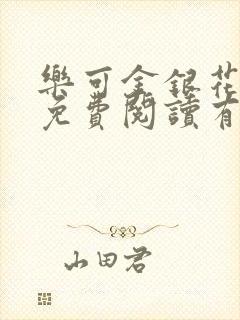 樂可金銀花
免費閱讀有
山田君